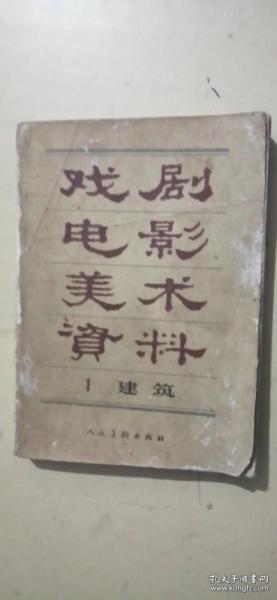 戏剧
电影
美术
資料
1 建筑
人民美術出版社
孔夫子旧书网